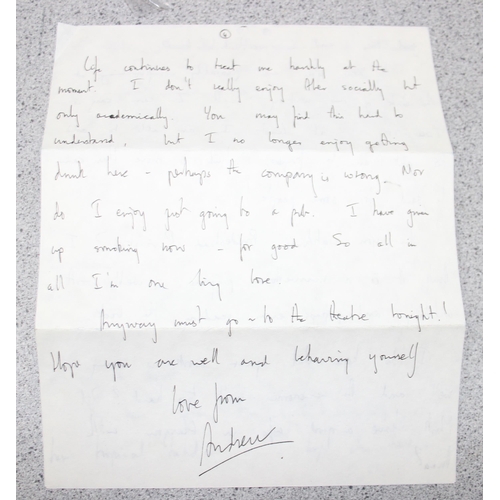 Life continues to treat me harshly at the
moment. I don't really enjoy Aber socially but
only academically. You may find this hard to
understand, but I no longer enjoy getting
drunk here - perhaps the company is wrong. Nor
do I enjoy just going to a pub. I have given
up smoking now - for good. So all in
all I'm one big bore.
Anyway must go - to the theatre tonight!
Hope you are well and behaving yourself
love from
Andrew